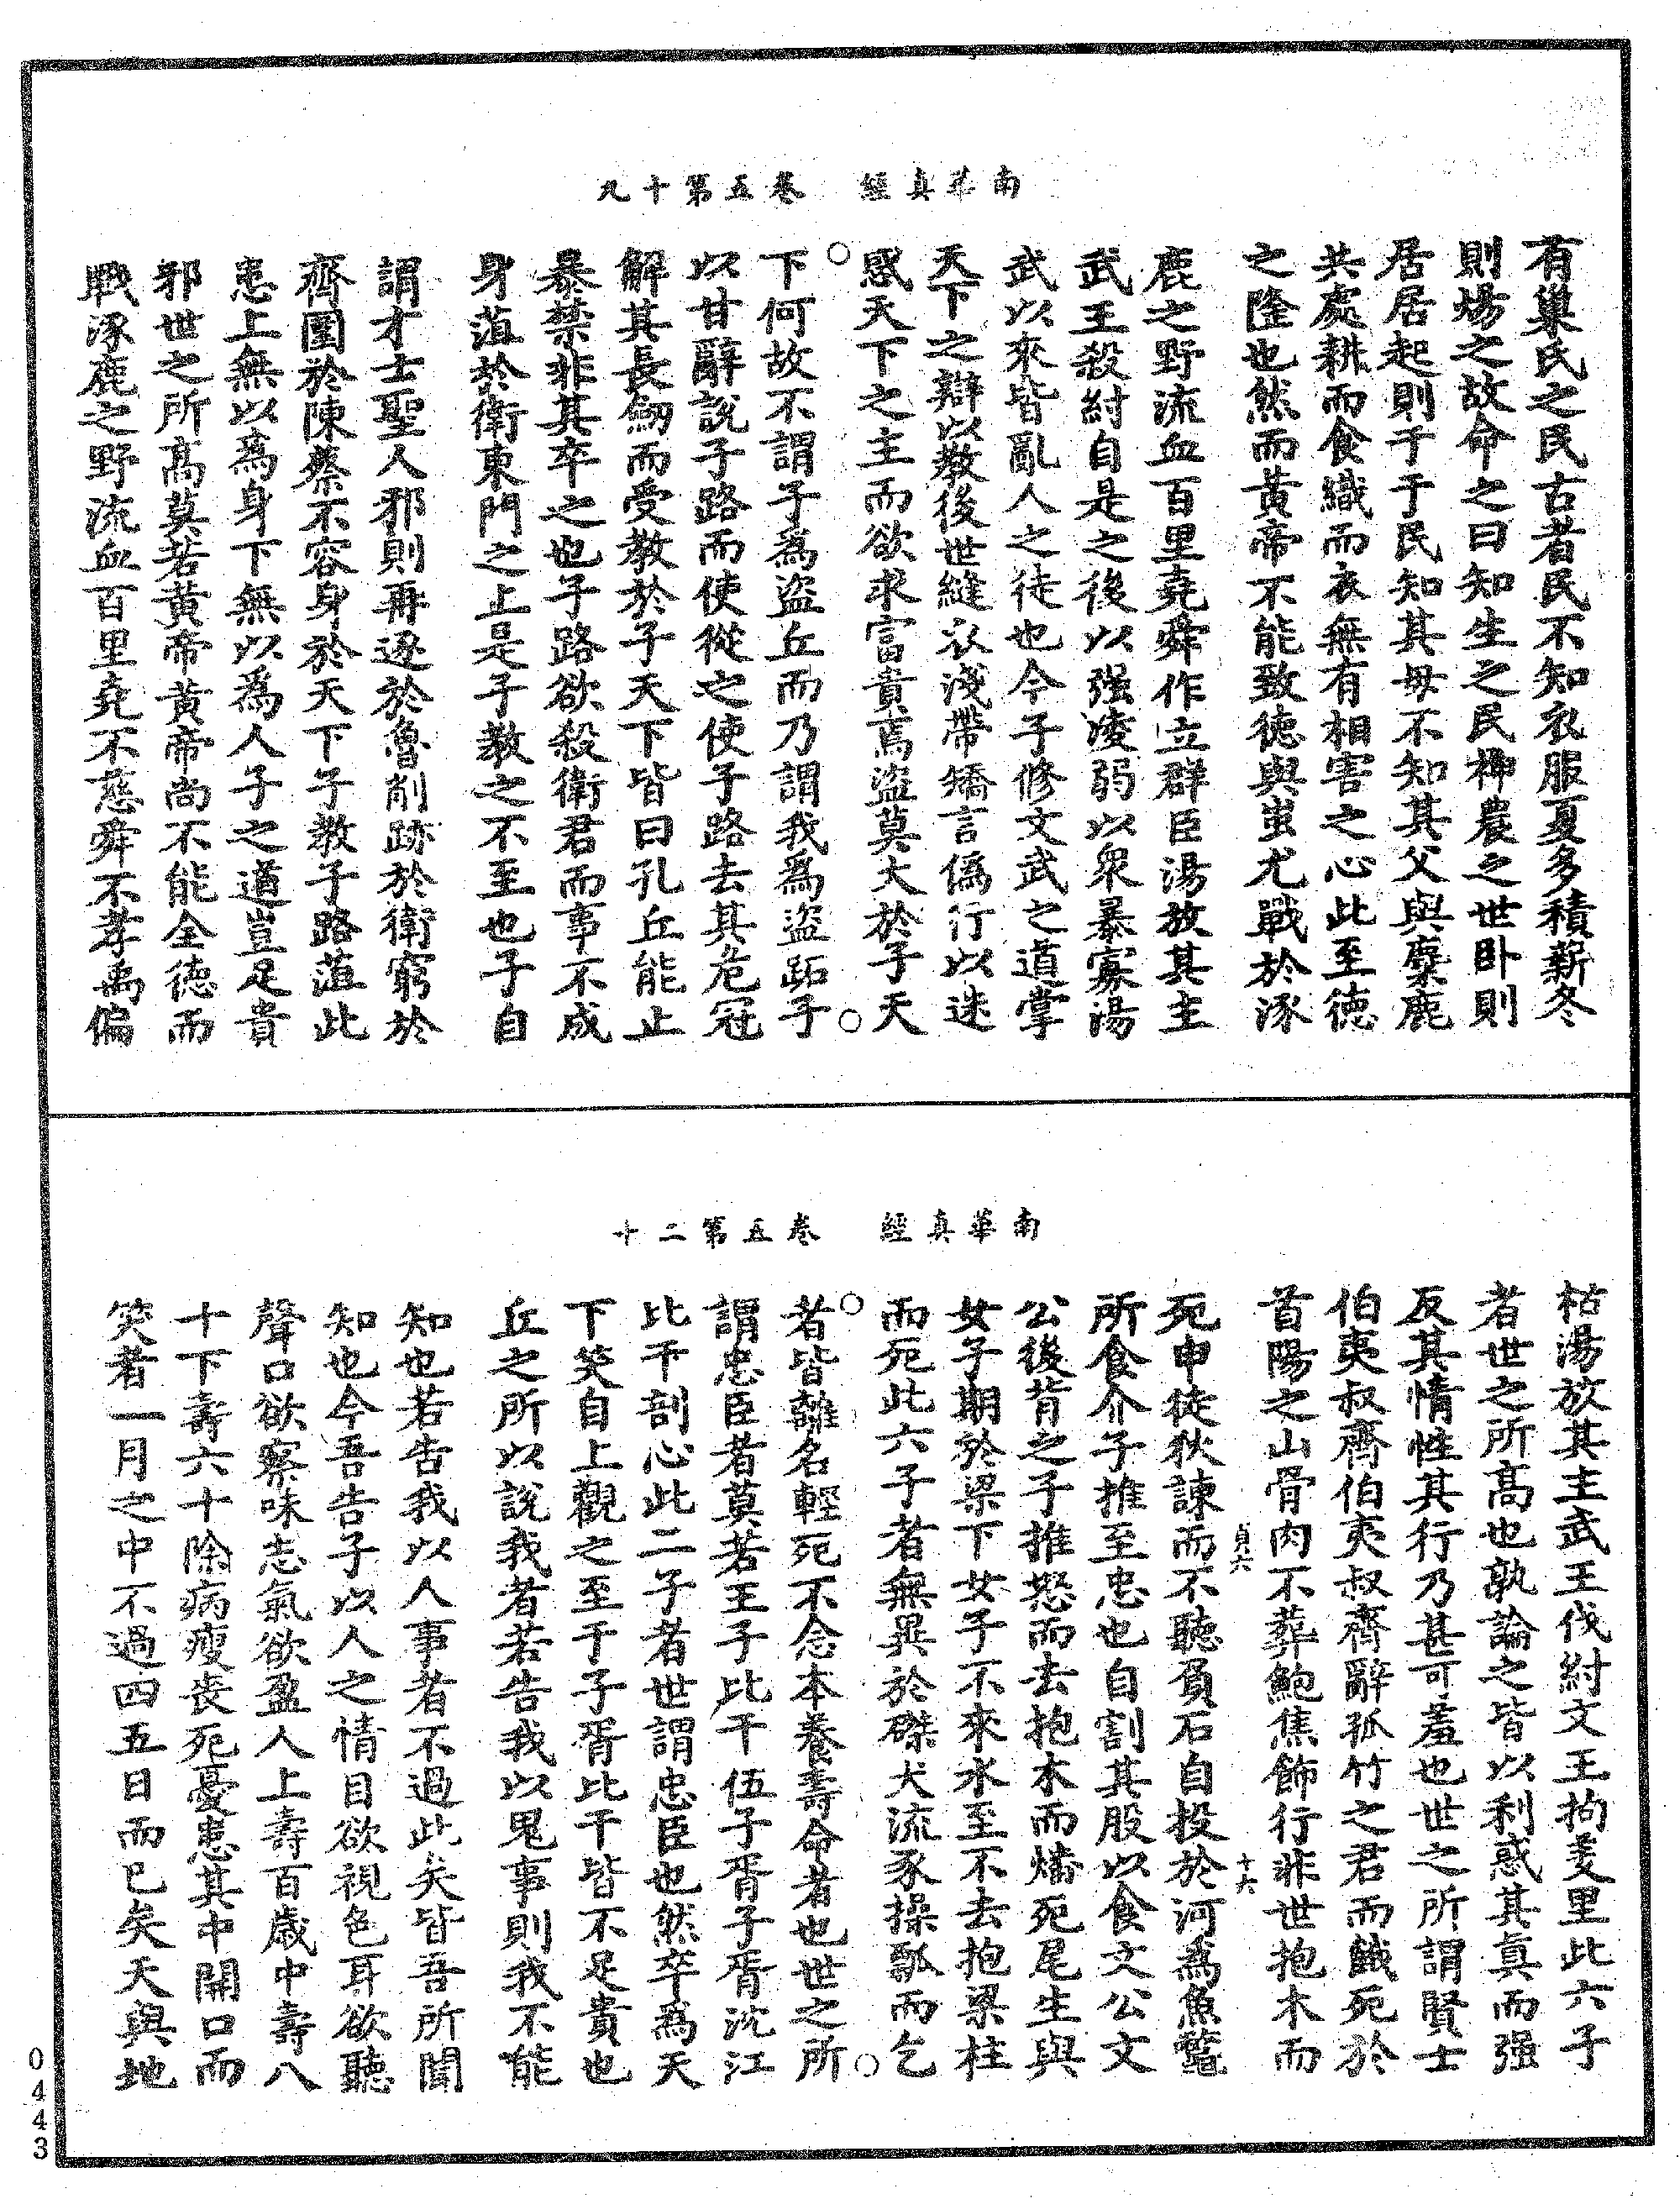 南華真經　卷五第十九
有巢氏之民古者民不知衣服夏多積薪冬
則煬之故命之曰知生之民神農之世卧則
居居起則于于民知其母不知其父與麋鹿
共處耕而食織而衣無有相害之心此至德
之隆也然而黄帝不能致德與蚩尤戰於涿
鹿之野流血百里堯舜作立群臣湯放其主
武王殺紂自是之後以强凌弱以衆暴寡湯
武以來皆亂人之徒也今子修文武之道掌
天下之辯以教後世縫衣淺帶矯言僞行以迷
惑天下之主而欲求富貴焉盜莫大於子天
下何故不謂子為盜丘而乃謂我爲盜跖子
以甘辭說子路而使從之使子路去其危冠
解其長劒而受教於子天下皆曰孔丘能止
暴禁非其卒之也子路欲殺衛君而事不成
身菹於衛東門之上是子教之不至也子自
謂才士聖人邪則再逐於魯削跡於衛窮於
齊圍於陳蔡不容身於天下子教子路菹此
患上無以爲身下無以爲人子之道豈足貴
邪世之所髙莫若黄帝黄帝尚不能全德而
戰涿鹿之野流血百里堯不慈舜不孝禹偏
南華真經　卷五第二十
枯湯放其主武王伐紂文王拘羑里此六子
者世之所髙也孰論之皆以利惑其真而强
反其情性其行乃甚可羞也世之所謂賢士
伯夷叔齊伯夷叔齊辭孤竹之君而餓死於
首陽之山骨肉不葬鮑焦飾行非世抱木而
貞六　十六
死申徒狄諫而不聽負石自投於河爲魚鼈
所食介子推至忠也自割其股以食文公文
公後背之子推怒而去抱木而燔死尾生與
女子期於梁下女子不來水至不去抱梁柱
而死此六子者無異於磔犬流豕操瓢而乞
者皆離名輕死不念本養壽命者也世之所
謂忠臣者莫若王子比干伍子胥子胥沈江
比干剖心此二子者世謂忠臣也然卒爲天
下笑自上觀之至于子胥比干皆不足貴也
丘之所以說我者若告我以鬼事則我不能
知也若告我以人事者不過此矣皆吾所聞
知也今吾告子以人之情目欲視色耳欲聽
聲口欲察味志氣欲盈人上壽百歲中壽八
十下壽六十除病瘦丧死憂患其中開口而
笑者一月之中不過四五日而已矣天與地
0443